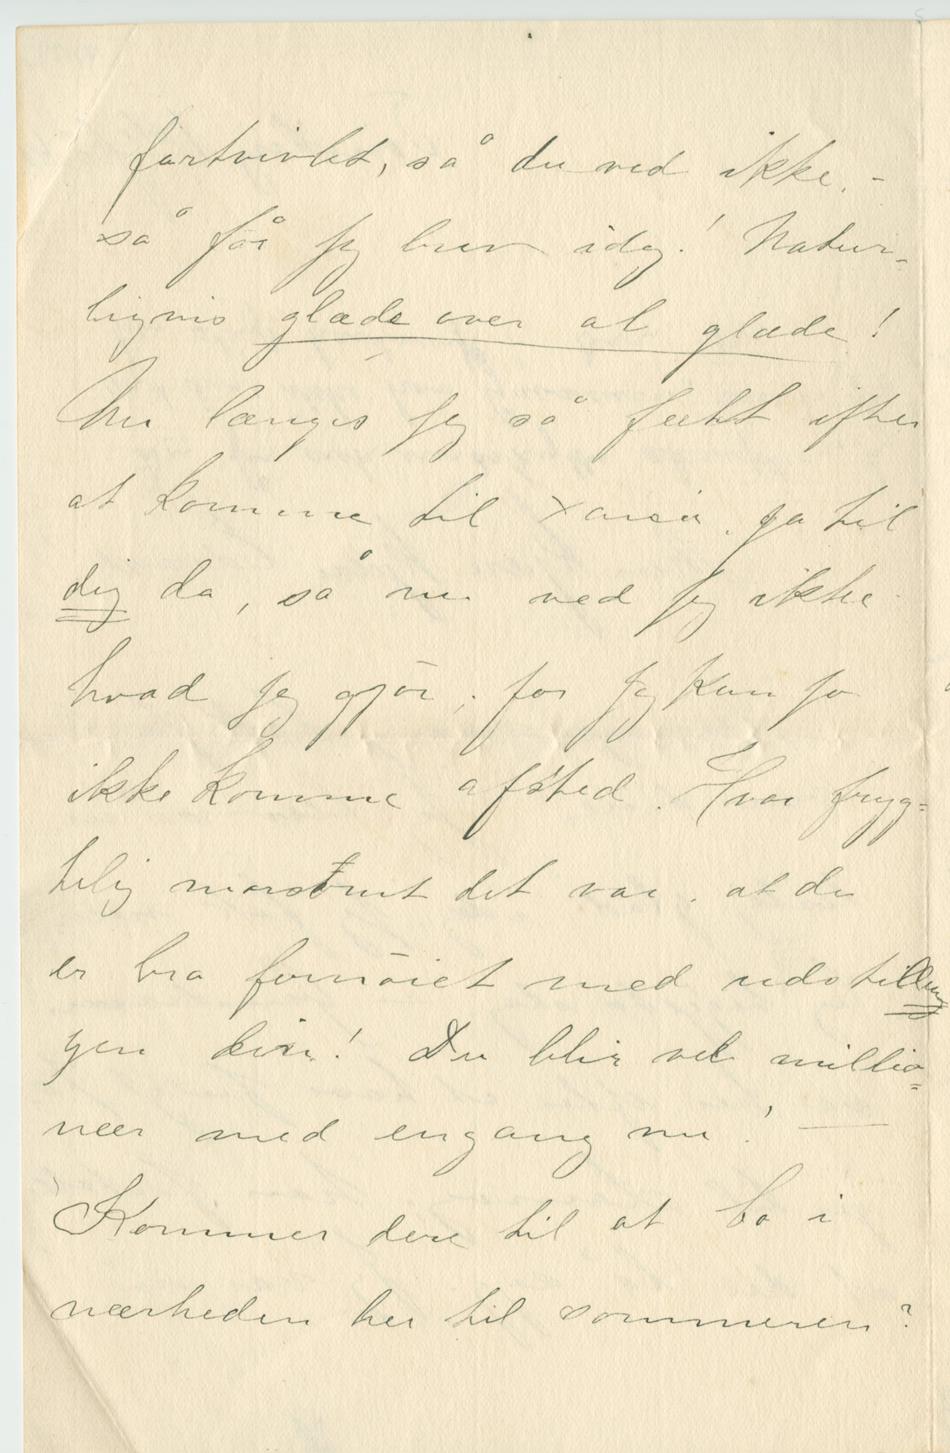 fortvivlet, så du ved ikke. –
så får jeg brev idag! Natur-
ligvis glæde over al glæde!
Nu længes jeg så fælt efter
at komme til Xania, ja til
dig da, så nu ved jeg ikke
hvad jeg gjör, for jeg kan jo
ikke komme afsted. Hvor fryg=
telig morsomt det var, at du
er bra fornöiet med udstillin
gen din! Du blir vel millio=
nær med engang nu! —
Kommer dere til at bo i
nærheden her til sommeren?